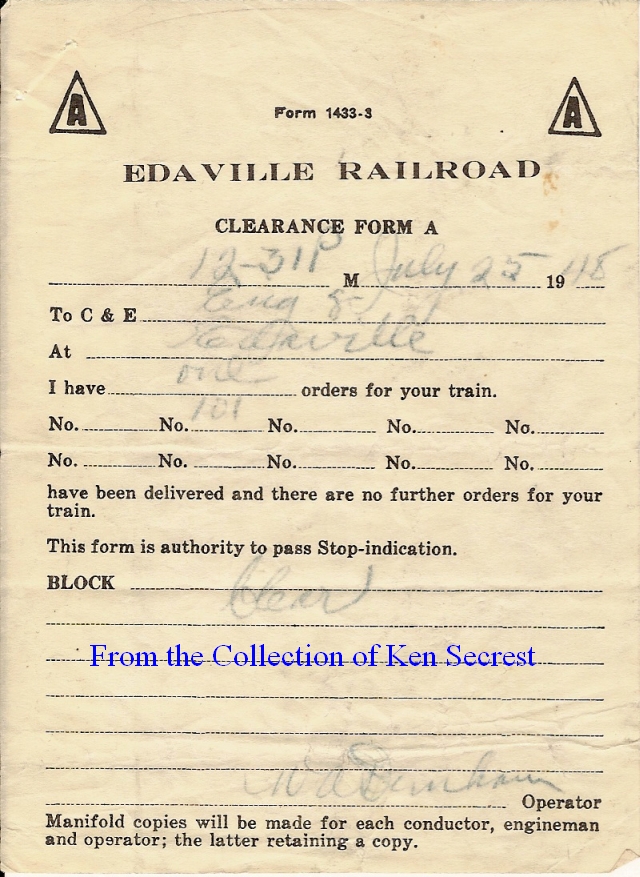 A A
Form 1433-3
EDAVILLE RAILROAD
CLEARANCE FORM A
12-31P M July 25 1948
To C & E Eng 8
At Edaville
I have one orders for your train.
101
No. No. No. No. No.
No. No. No. No. No.
have been delivered and there are no further orders for your
train.
This form is authority to pass Stop-indication.
BLOCK Clear
From the Collection of Ken Secrest
Operator
Manifold copies will be made for each conductor, engineman
and operator; the latter retaining a copy.